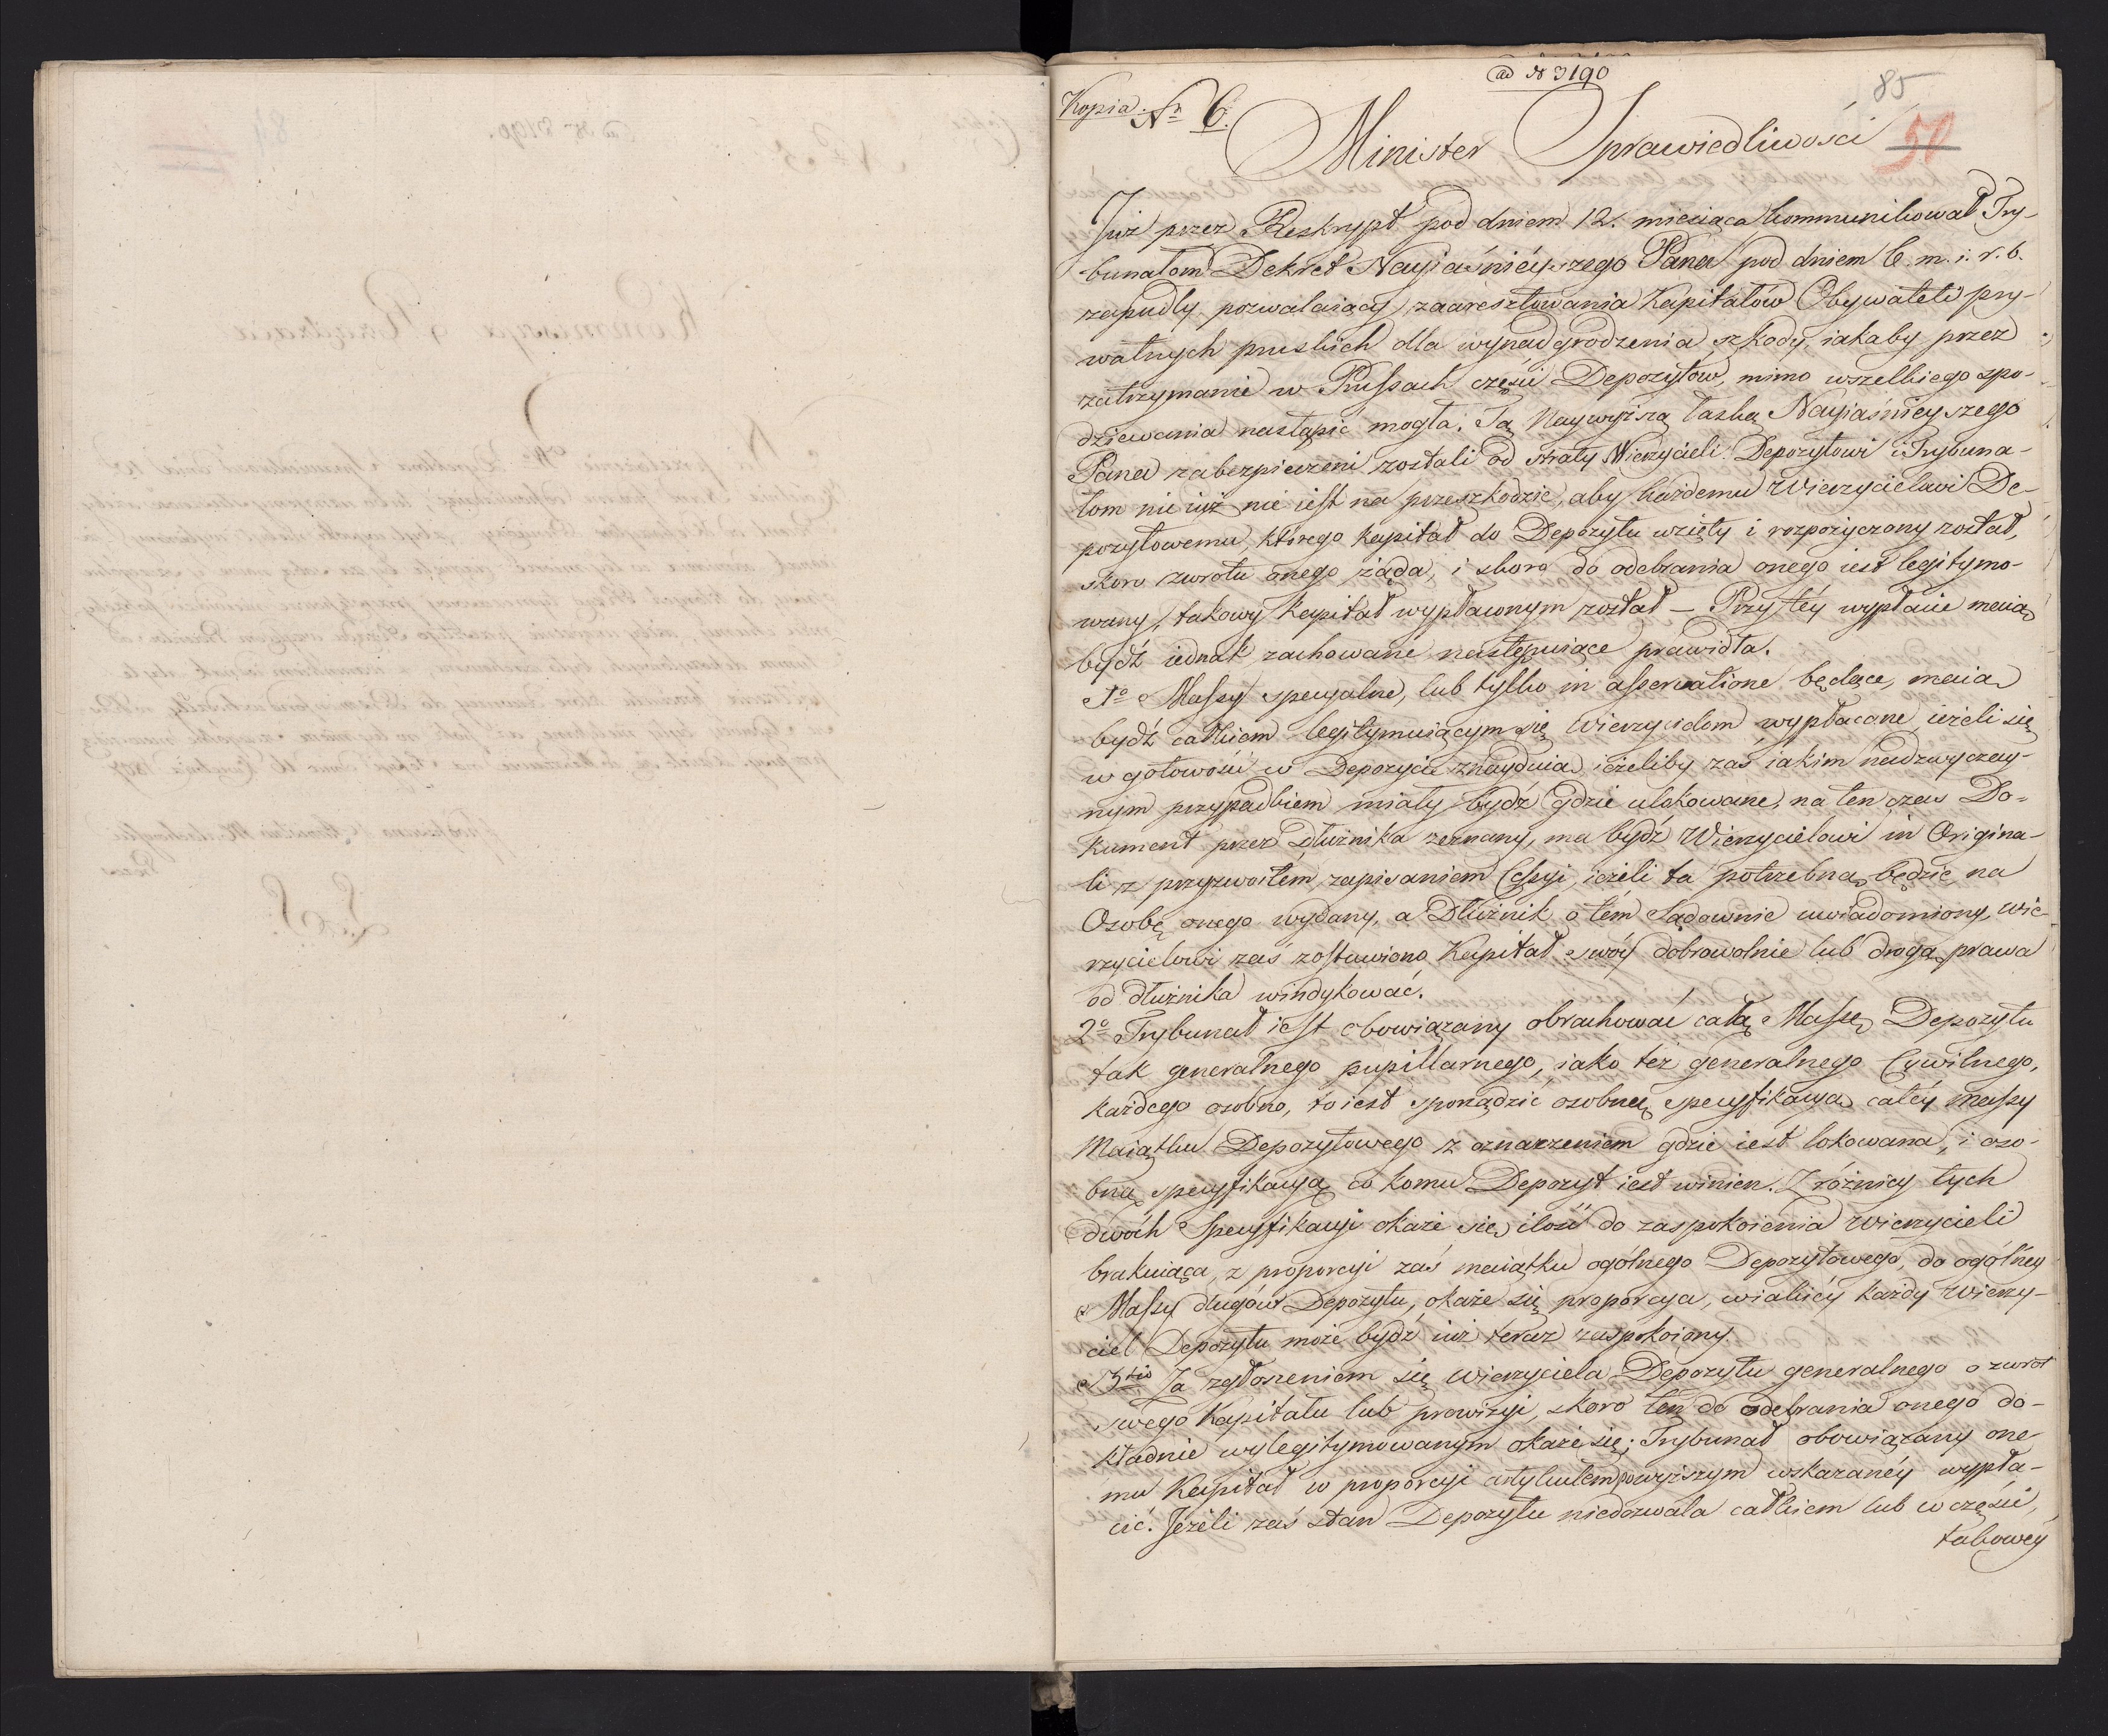 ad N 3190
85
Kopia. Nr. 6.
50
Minister Sprawiedliwości
Już przez Reskrypt pod dniem 12. miesiąca kommunikował Try-
bunałom Dekret Nayiaśnieyszego Pana pod dniem 6. m. i. r. b.
zapadły pozwalaiący zaaresztowania Kapitałów Obywateli pry-
watnych pruskich dla wynadgrodzenia szkody, iakaby przez
zatrzymanie w Prussach części Depozytow, mimo wszelkiego spo-
dziewania nastąpić mogła. Tą Naywyższą łaską Nayiaśnieyszego
Pana zabezpieczeni zostali od straty Wierzycieli Depozytowi i Trybuna-
łom nic iuż nie iest na przeszkodzie, aby każdemu Wierzycielowi De-
pozytowemu, którego kapitał do Depozytu wzięty i rozpożyczony został,
skoro zwrotu onego żąda, i skoro do odebrania onego iest legitymo-
wany, takowy kapitał wypłaconym został — Przy téy wypłacie maią
bydź iednak zachowane następuiące prawidła.
1o Massy specyalne, lub tylko in asservatione będące, maią
bydź całkiem legitymuiącym się Wierzycielom wypłacane, ieżeli się
w gotowości w Depozycie znayduią, ieżeliby zaś iakim nadzwyczay-
nym przypadkiem miały bydź gdzie ulokowane, na ten czas Do-
kument przez Dłużnika zeznany, ma bydź Wierzycielowi in Origina-
li z przyzwoitém zapisaniem Cessyi, ieżeli ta potrzebną będzie, na
Osobę onego wydany, a Dłużnik o tém Sądownie uwiadomiony, wie-
rzycielowi zaś zostawiono Kapitał swóy dobrowolnie lub drogą prawa
od dłużnika windykować.
2o Trybunał iest obowiązany obrachować całą Massę Depozytu
tak generalnego pupillarnego, iako też generalnego Cywilnego,
każdego osobno, to iest sporządzić osobną specyfikacyą całéy massy
Maiątku Depozytowego z oznaczeniem gdzie iest lokowana, i oso-
bną specyfikacyą co komu Depozyt iest winien. Z różnicy tych
dwóch Specyfikacyi okaże się ilość do zaspokoienia wierzycieli
brakuiąca, z proporcyi zaś maiątku ogólnego Depozytowego, do ogólney
Massy długów Depozytu, okaże się proporcya, wiakiéy każdy Wierzy-
ciel Depozytu może bydź iuż teraz zaspokoiony.
3tio Za zgłoszeniem się wierzyciela Depozytu generalnego o zwrót
swego Kapitału lub prowizyi, skoro ten do odebrania onego do-
kładnie wylegitymowanym okaże się; Trybunał obowiązany one-
mu Kapitał w proporcyi artykułem powyższym wskazanéy wypła-
cić. Jeżeli zaś stan Depozytu niedozwala całkiem lub w części,
takowéy